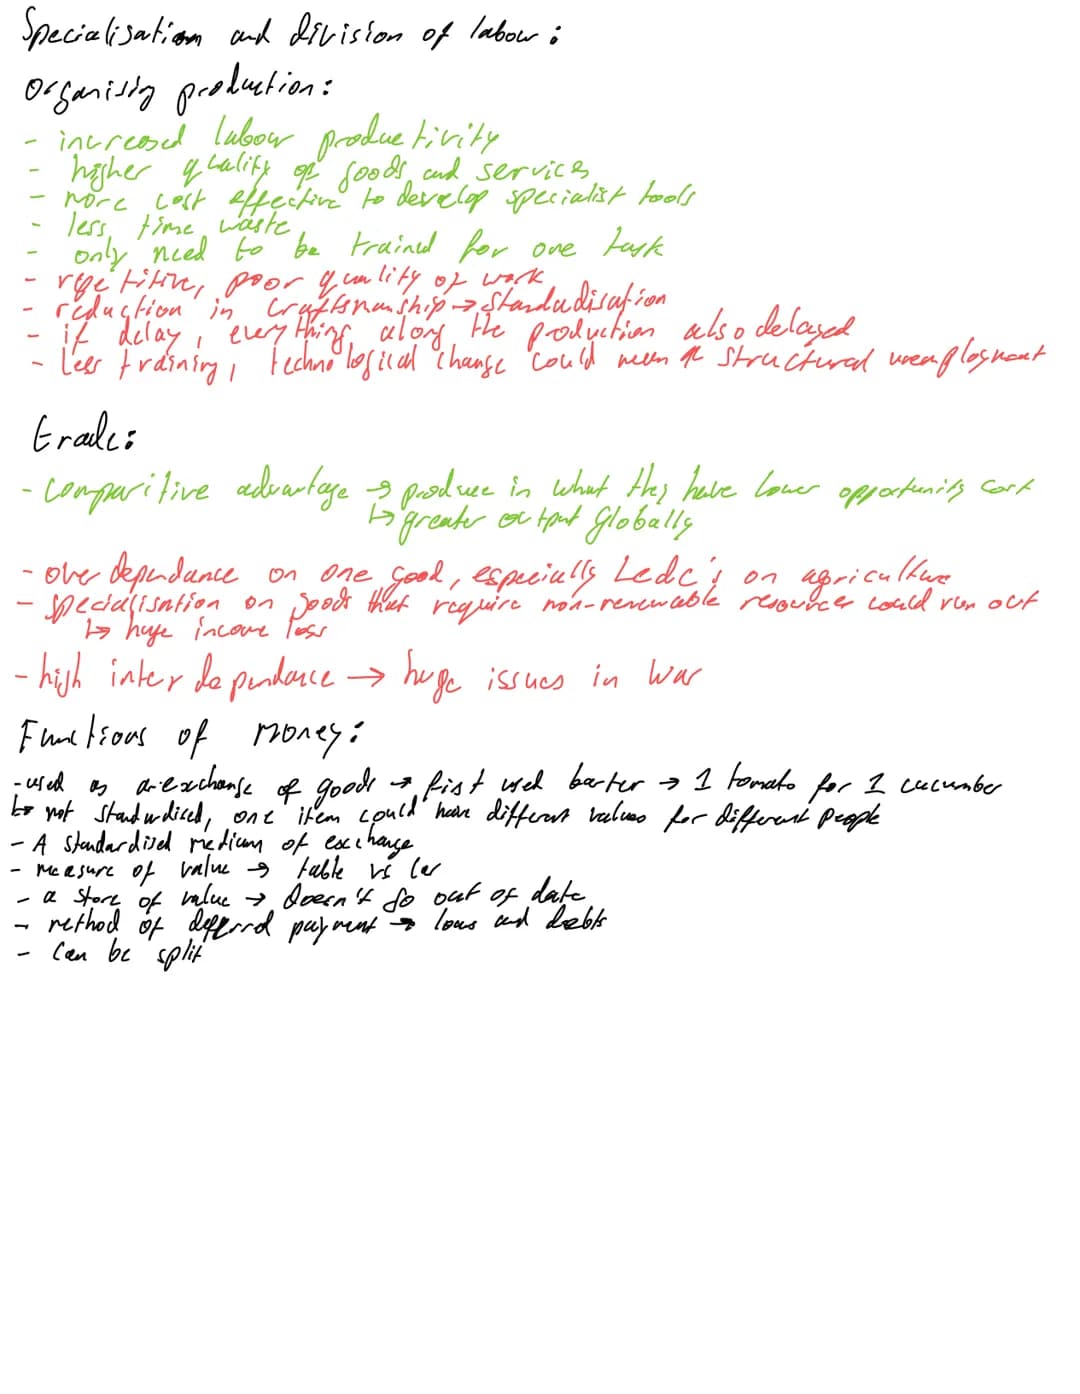 Specialisation and division of labour :
Organising production :
- increased labour productivity
- higher quality of goods and services
- more cost effective to develop specialist tools
- less time waste
- only need to be trained for one task
- repetitive, poor quality of work
- reduction in craftsmanship → standadisation
- if delay, everything along the production also delayed
- less training, technological change could mean structural unemployment
trade :
- comparitive advantage → produce in what they have lower opportunity cost
↳ greater output globally
- over dependance on one good, especially Ledc's on agriculture
- specialisation on goods that require non-renewable resources could run out
↳ huge income loss
- high interdependance → huge issues in war
Functions of money :
- used as an exchange of goods → first used barter → 1 tomato for 1 cucumber
↳ not standardised, one item could have different values for different people
- A standardised medium of exchange
- measure of value → table vs car
- a store of value → doesn't go out of date
- method of deferred payment → loans and debts
- can be split